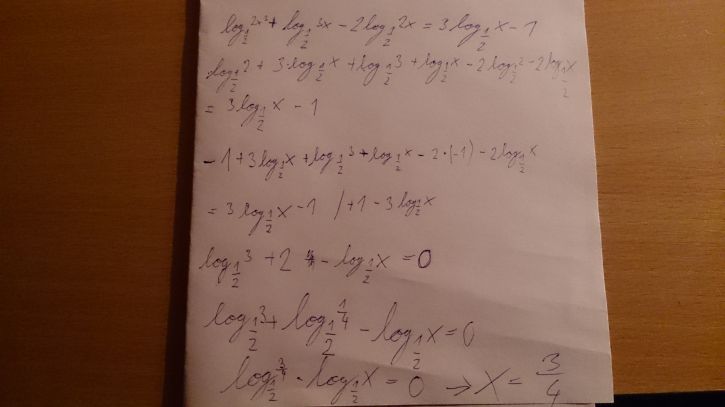 log_{1/2} 2x³ + log_{1/2} 3x - 2 log_{1/2} 2x = 3 log_{1/2} x - 1
log_{1/2} 2 + 3 · log_{1/2} x + log_{1/2} 3 + log_{1/2} x - 2 log_{1/2} 2 - 2 log_{1/2} x
= 3 log_{1/2} x - 1
- 1 + 3 log_{1/2} x + log_{1/2} 3 + log_{1/2} x - 2 · (-1) - 2 log_{1/2} x
= 3 log_{1/2} x - 1 / + 1 - 3 log_{1/2} x
log_{1/2} 3 + 2 - log_{1/2} x = 0
log_{1/2} 3 + log_{1/2} 1/4 - log_{1/2} x = 0
log_{1/2} 3/4 - log_{1/2} x = 0 → x = 3/4